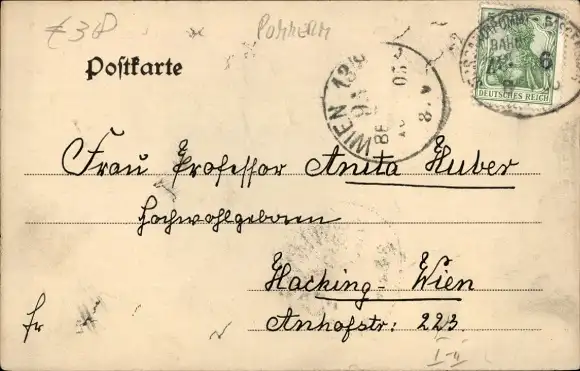 € 38 Pommern
Postkarte
WIEN 13/9
6
DEUTSCHES REICH
Frau Professor Anita Huber
Hochwohlgeboren
Hacking - Wien
Anhofstr: 223.
fr
I-II